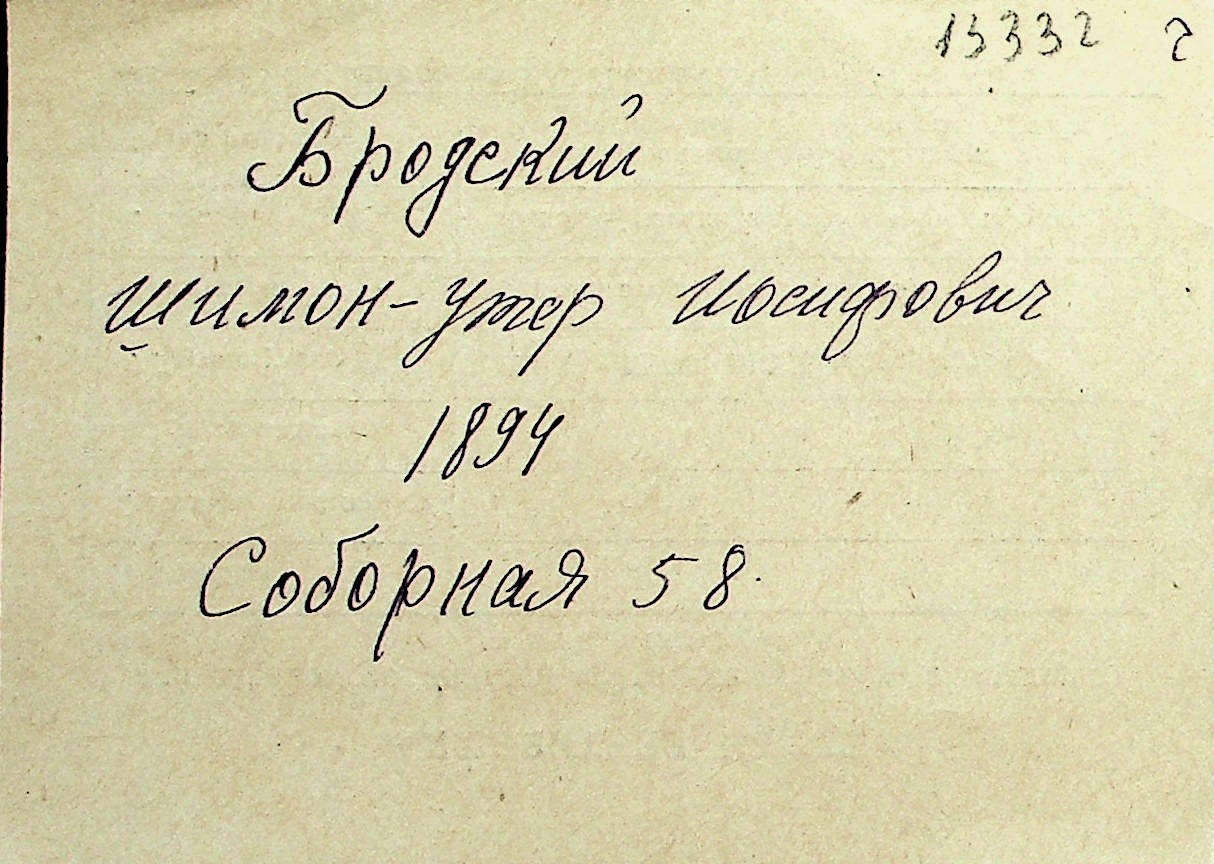 13332 2
Бродский
Шимон-Ужер Иосифович
1894
Соборная 58